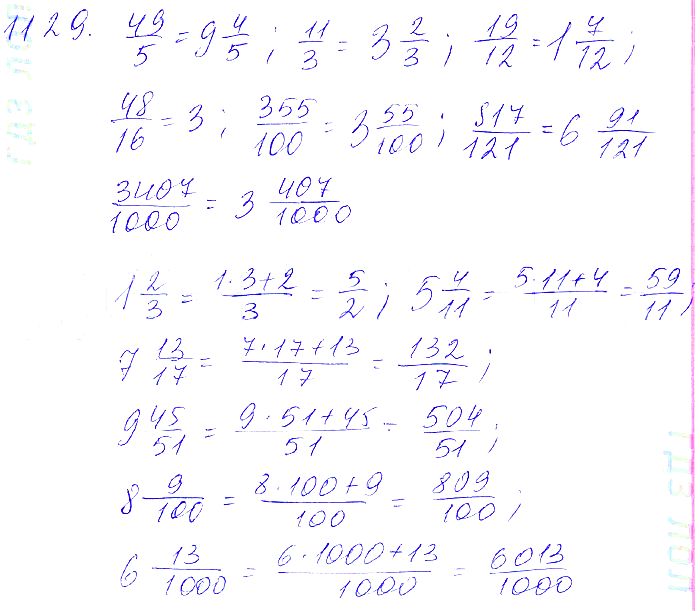 1129. 49/5 = 9 4/5 ; 11/3 = 3 2/3 ; 19/12 = 1 7/12 ;
48/16 = 3 ; 355/100 = 3 55/100 ; 817/121 = 6 91/121
3407/1000 = 3 407/1000
1 2/3 = 1·3+2/3 = 5/2 ; 5 4/11 = 5·11+4/11 = 59/11 ;
7 13/17 = 7·17+13/17 = 132/17 ;
9 45/51 = 9·51+45/51 = 504/51 ;
8 9/100 = 8·100+9/100 = 809/100 ;
6 13/1000 = 6·1000+13/1000 = 6013/1000